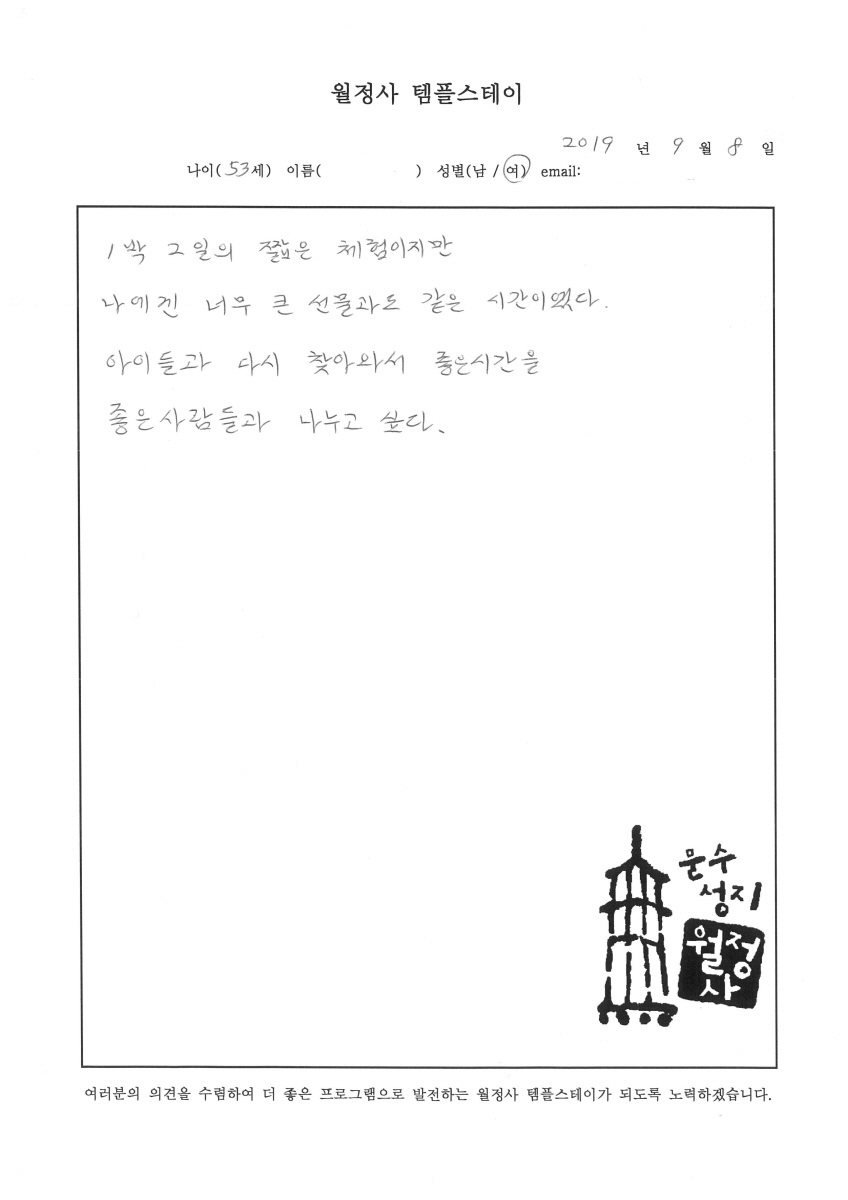 월정사 템플스테이
2019 년 9 월 8 일
나이( 53세) 이름( ) 성별(남 / 여) email:
1박 2일의 짧은 체험이지만
나에겐 너무 큰 선물과도 같은 시간이였다.
아이들과 다시 찾아와서 좋은시간을
좋은사람들과 나누고 싶다.
문수
성지
월정
사
여러분의 의견을 수렴하여 더 좋은 프로그램으로 발전하는 월정사 템플스테이가 되도록 노력하겠습니다.